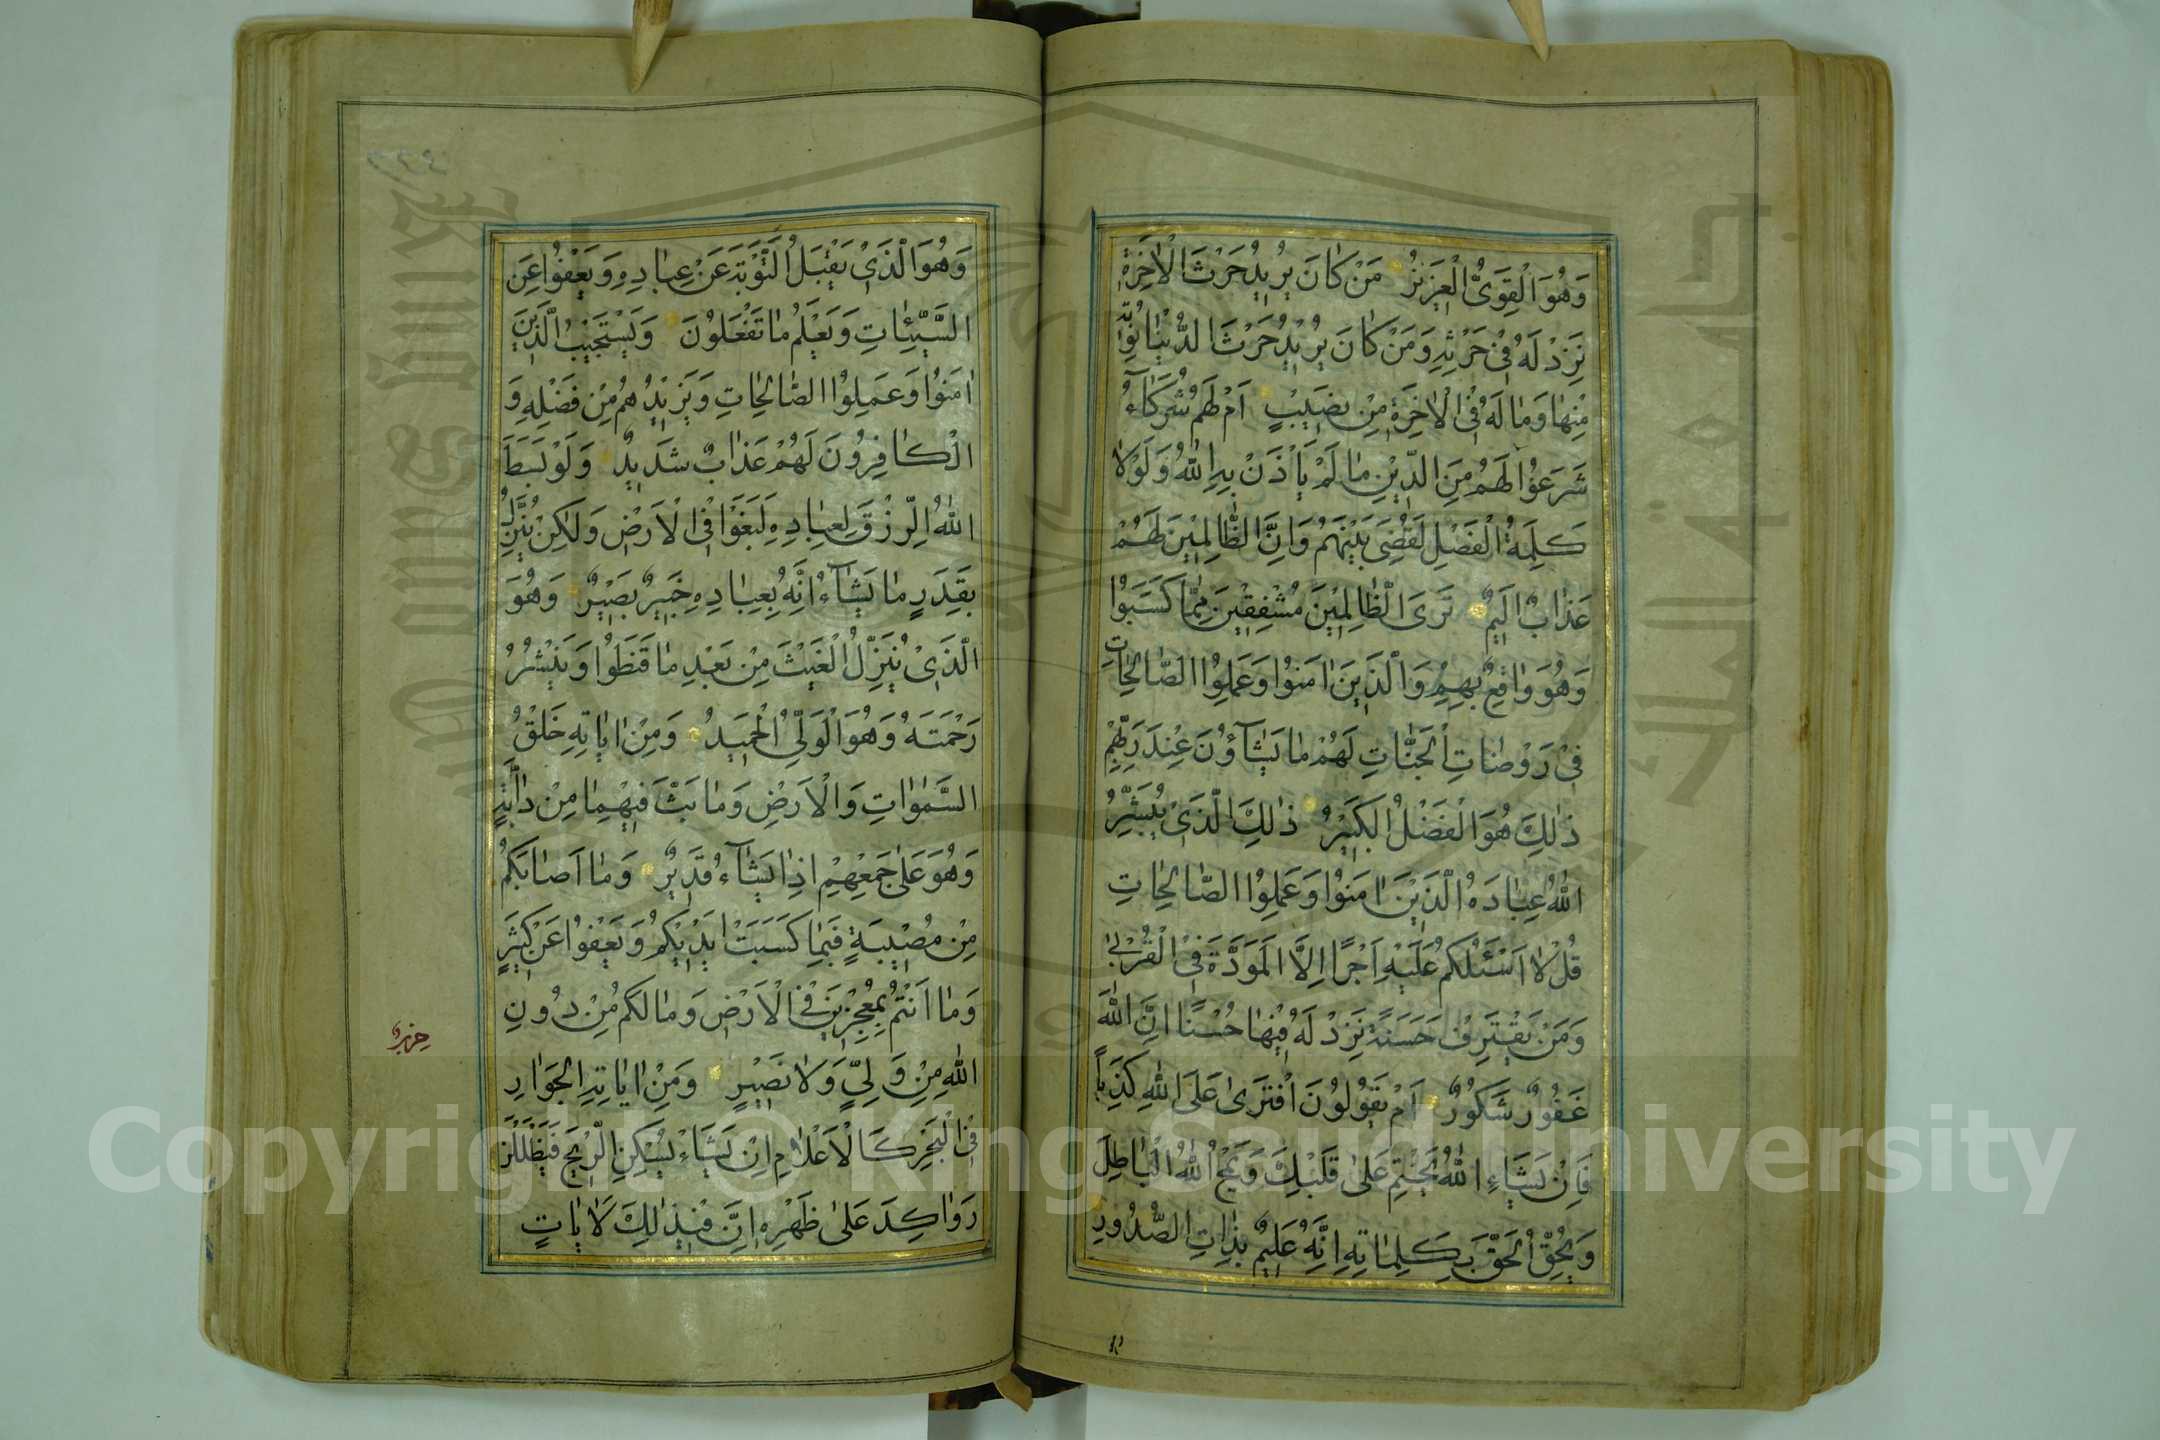 وَهُوَ الْقَوِىُّ الْعَزِيزُ مَنْ كَانَ يُرِيدُ حَرْثَ الْاٰخِرَةِ
نَزِدْ لَهُ فِى حَرْثِهِ وَمَنْ كَانَ يُرِيدُ حَرْثَ الدُّنْيَا نُؤْتِهِ
مِنْهَا وَمَا لَهُ فِى الْاٰخِرَةِ مِنْ نَصِيبٍ اَمْ لَهُمْ شُرَكَآءُ
شَرَعُوا لَهُمْ مِنَ الدِّينِ مَا لَمْ يَأْذَنْ بِهِ اللّٰهُ وَلَوْلَا
كَلِمَةُ الْفَصْلِ لَقُضِىَ بَيْنَهُمْ وَاِنَّ الظَّالِمِينَ لَهُمْ
عَذَابٌ اَلِيمٌ تَرَى الظَّالِمِينَ مُشْفِقِينَ مِمَّا كَسَبُوا
وَهُوَ وَاقِعٌ بِهِمْ وَالَّذِينَ اٰمَنُوا وَعَمِلُوا الصَّالِحَاتِ
فِى رَوْضَاتِ الْجَنَّاتِ لَهُمْ مَا يَشَآؤُنَ عِنْدَ رَبِّهِمْ
ذٰلِكَ هُوَ الْفَضْلُ الْكَبِيرُ ذٰلِكَ الَّذِى يُبَشِّرُ
اللّٰهُ عِبَادَهُ الَّذِينَ اٰمَنُوا وَعَمِلُوا الصَّالِحَاتِ
قُلْ لَا اَسْئَلُكُمْ عَلَيْهِ اَجْرًا اِلَّا الْمَوَدَّةَ فِى الْقُرْبٰى
وَمَنْ يَقْتَرِفْ حَسَنَةً نَزِدْ لَهُ فِيهَا حُسْنًا اِنَّ اللّٰهَ
غَفُورٌ شَكُورٌ اَمْ يَقُولُونَ افْتَرٰى عَلَى اللّٰهِ كَذِبًا
فَاِنْ يَشَاءِ اللّٰهُ يَخْتِمْ عَلٰى قَلْبِكَ وَيَمْحُ اللّٰهُ الْبَاطِلَ
وَيُحِقُّ الْحَقَّ بِكَلِمَاتِهِ اِنَّهُ عَلِيمٌ بِذَاتِ الصُّدُورِ
وَهُوَ الَّذِى يَقْبَلُ التَّوْبَةَ عَنْ عِبَادِهِ وَيَعْفُوا عَنِ
السَّيِّئَاتِ وَيَعْلَمُ مَا تَفْعَلُونَ وَيَسْتَجِيبُ الَّذِينَ
اٰمَنُوا وَعَمِلُوا الصَّالِحَاتِ وَيَزِيدُهُمْ مِنْ فَضْلِهِ وَ
الْكَافِرُونَ لَهُمْ عَذَابٌ شَدِيدٌ وَلَوْ بَسَطَ
اللّٰهُ الرِّزْقَ لِعِبَادِهِ لَبَغَوْا فِى الْاَرْضِ وَلٰكِنْ يُنَزِّلُ
بِقَدَرٍ مَا يَشَآءُ اِنَّهُ بِعِبَادِهِ خَبِيرٌ بَصِيرٌ وَهُوَ
الَّذِى يُنَزِّلُ الْغَيْثَ مِنْ بَعْدِ مَا قَنَطُوا وَيَنْشُرُ
رَحْمَتَهُ وَهُوَ الْوَلِىُّ الْحَمِيدُ وَمِنْ اٰيَاتِهِ خَلْقُ
السَّمٰوَاتِ وَالْاَرْضِ وَمَا بَثَّ فِيهِمَا مِنْ دَابَّةٍ
وَهُوَ عَلٰى جَمْعِهِمْ اِذَا يَشَآءُ قَدِيرٌ وَمَا اَصَابَكُمْ
مِنْ مُصِيبَةٍ فَبِمَا كَسَبَتْ اَيْدِيكُمْ وَيَعْفُوا عَنْ كَثِيرٍ
وَمَا اَنْتُمْ بِمُعْجِزِينَ فِى الْاَرْضِ وَمَا لَكُمْ مِنْ دُونِ
اللّٰهِ مِنْ وَلِىٍّ وَلَا نَصِيرٍ وَمِنْ اٰيَاتِهِ الْجَوَارِ
فِى الْبَحْرِ كَالْاَعْلَامِ اِنْ يَشَاْءْ يُسْكِنِ الرِّيحَ فَيَظْلَلْنَ
رَوَاكِدَ عَلٰى ظَهْرِهِ اِنَّ فِى ذٰلِكَ لَاٰيَاتٍ
Copyright © King Saud University